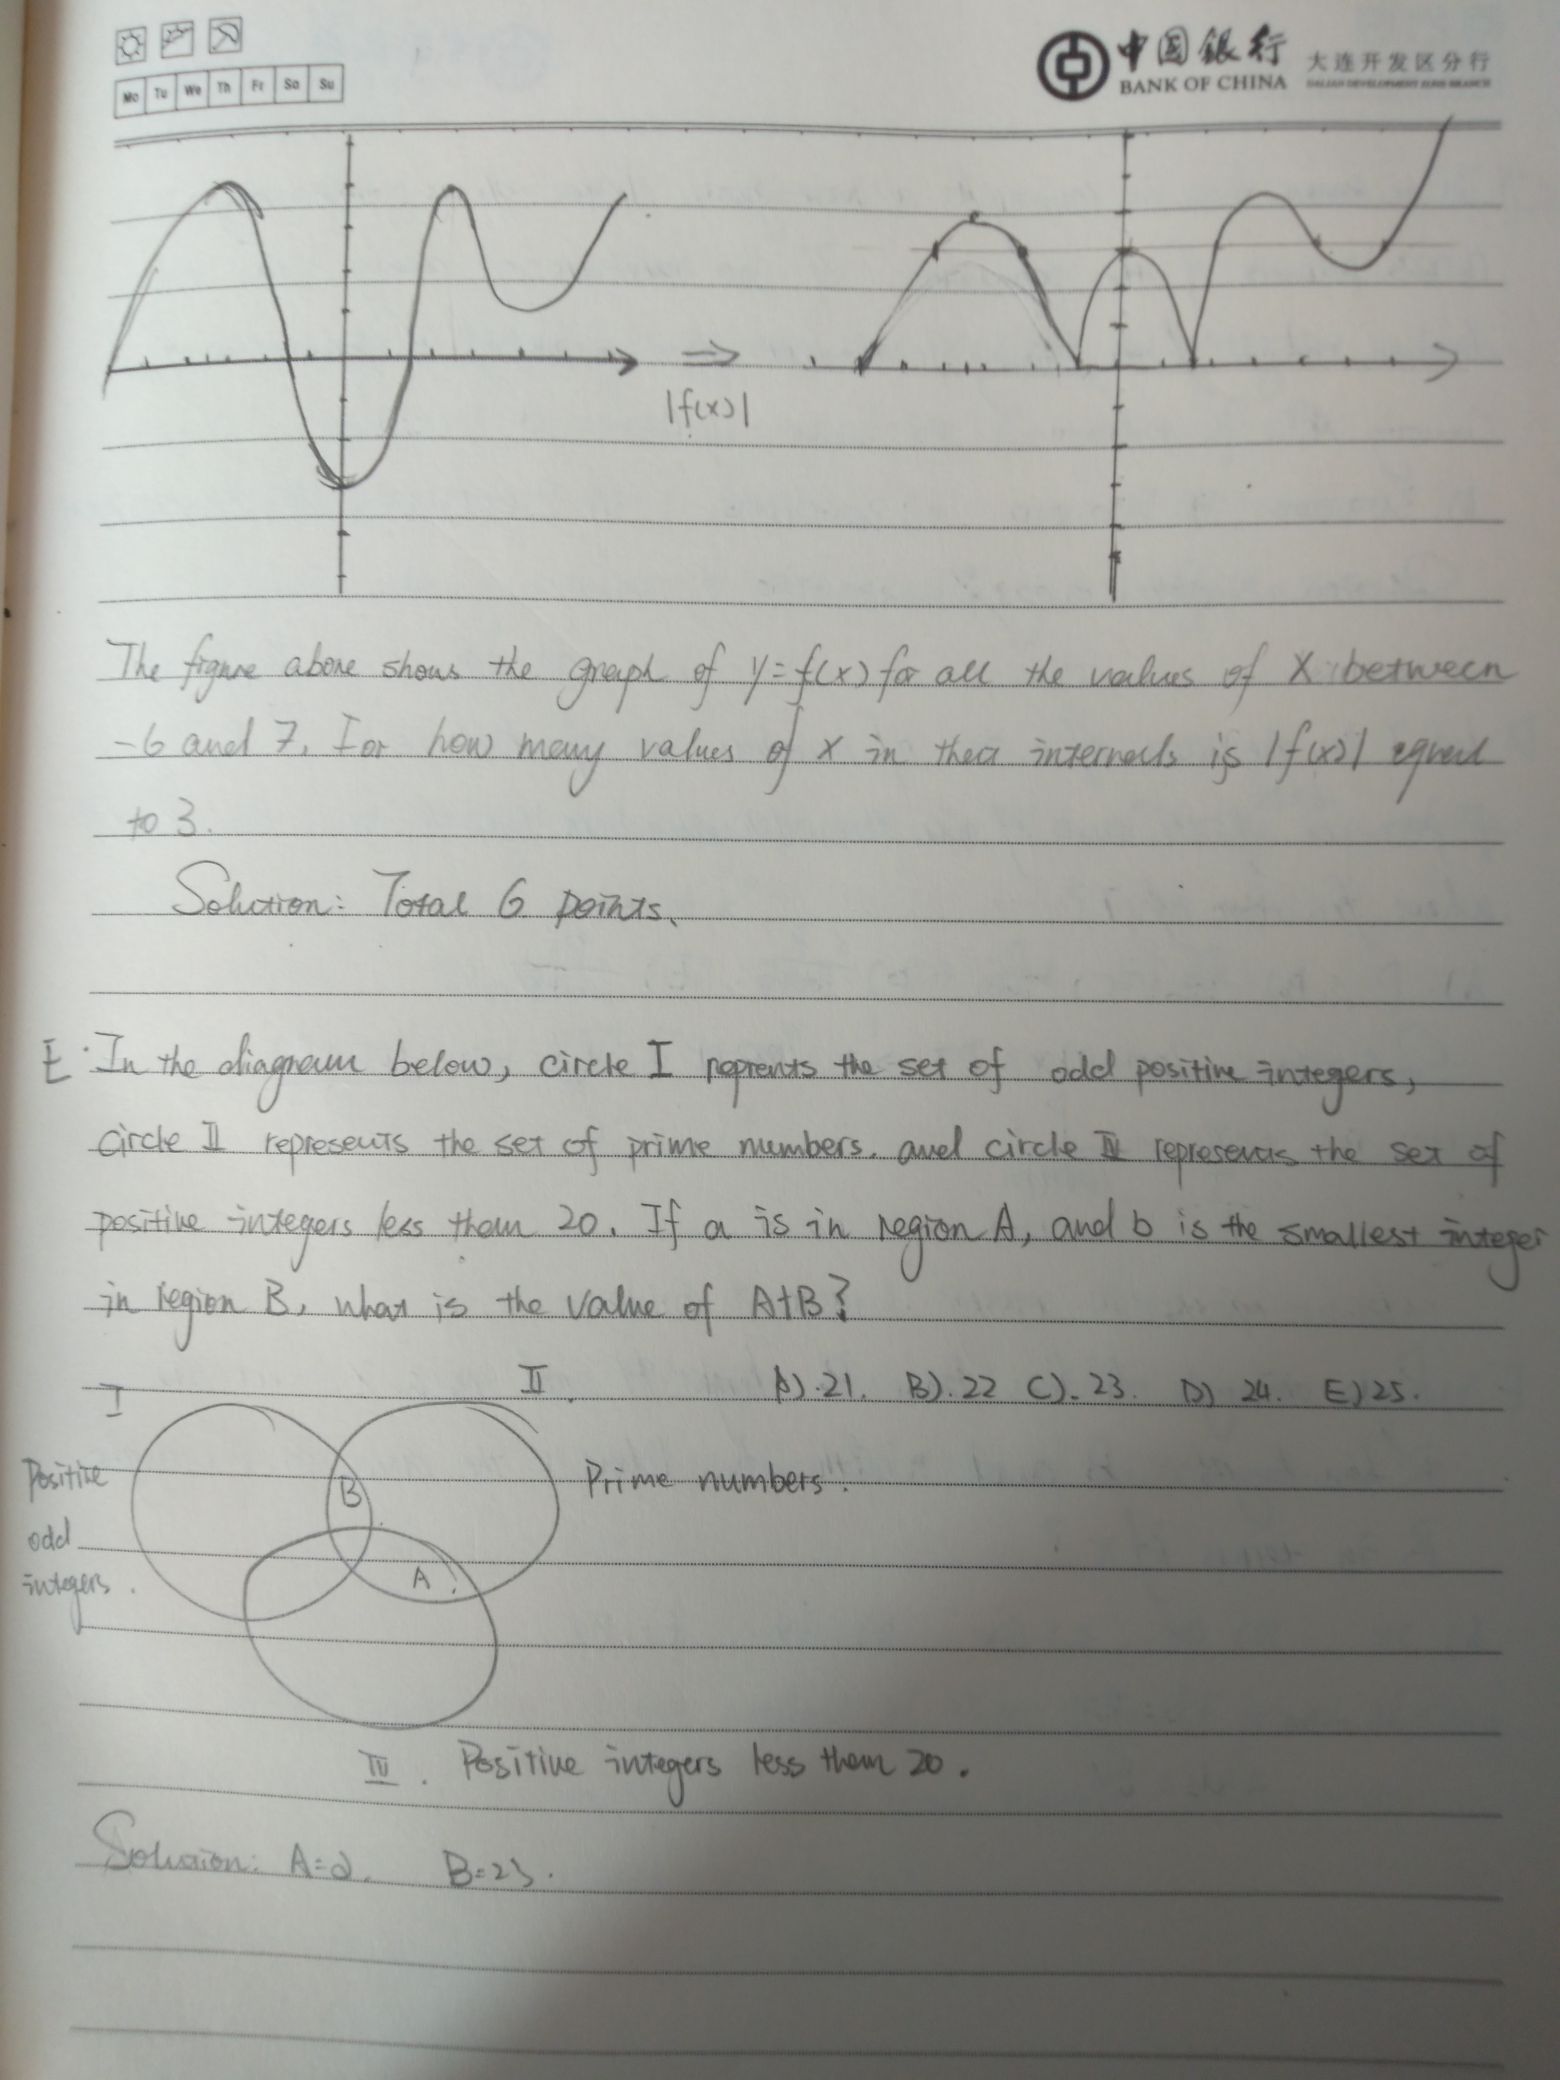 Mo Tu We Th Fr Sa Su
中国银行 大连开发区分行
BANK OF CHINA DALIAN DEVELOPMENT ZONE BRANCH
⇒
|f(x)|
The figure above shows the graph of y=f(x) for all the values of X between
-6 and 7. For how many values of x in the internals is |f(x)| equal
to 3.
Solution: Total 6 points.
E. In the diagram below, circle I reprents the set of odd positive integers,
circle II represents the set of prime numbers. and circle IV represents the set of
positive integers less them 20. If a is in region A, and b is the smallest integer
in region B, what is the value of A+B?
I II. A).21. B).22 C).23. D) 24. E)25.
Positive
odd
integers.
B
Prime numbers.
A
IV. Positive integers less them 20.
Soluion: A=2. B=23.